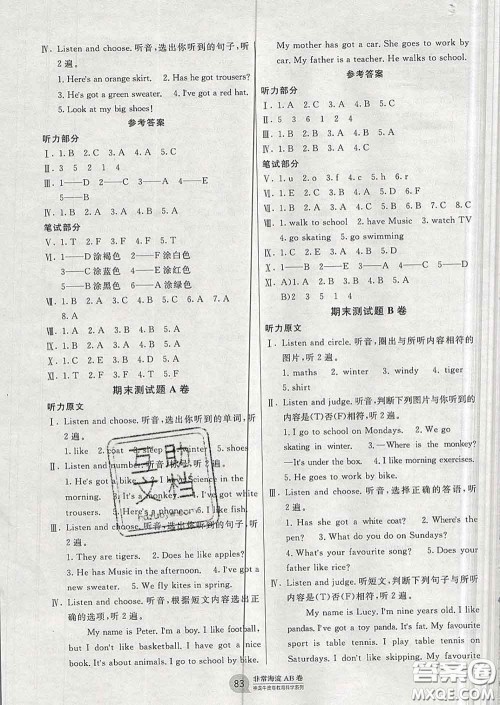 Ⅳ. Listen and choose. 听音,选出你听到的句子,听
2遍。
1. Here's an orange skirt. 2. Has he got trousers?
3. He's got a green sweater. 4. I've got a red hat.
5. Look at my big shoes!
参考答案
听力部分
Ⅰ. 1. B 2. C 3. A 4. A 5. C
Ⅱ. 3 5 2 1 4
Ⅲ. 1——D 2——B 3——A 4——E
5——C
Ⅳ. 1. B 2. A 3. A 4. A 5. B
笔试部分
Ⅴ. 1. T 2. F 3. T 4. F 5. F
Ⅵ. 1——D涂褐色 2——F涂白色
3——C涂蓝色 4——E涂红色
5——B涂黑色 6——A涂绿色
Ⅶ. 1. A 2. A 3. A 4. B 5. B
Ⅷ. 1. T 2. F 3. F 4. T 5. F 6. T 7. F
8. F
Ⅸ. 1. A 2. B 3. A 4. B 5. A
期末测试题 A 卷
听力原文
Ⅰ. Listen and choose. 听音,选出你听到的单词,听
2遍。
1. like 2. coat 3. sleep 4. winter 5. shoes
Ⅱ. Listen and number. 听音,标号,听2遍。
1. I've got a bike. 2. I have Science in the
morning. 3. It's a monkey. 4. I've got
trousers. 5. Here's a phone. 6.
Ⅲ. Listen and choose. 听音,选出你听到的句子,听
2遍。
1. They are tigers. 2. Does he like apples?
3. He has Music in the afternoon. 4. I've got a
new sweater. 5. We fly kites in spring.
Ⅳ. Listen and choose. 听音,根据短文内容选出正
确的选项,听2遍。
My name is Peter. I'm a boy. I like football,
but I don't like basketball. I've got a new
coat. It's black. I go to school by bike.
My mother has got a car. She goes to work by
car. My father is a teacher. He walks to school.
参考答案
Ⅰ. 1. A 2. C 3. B 4. A 5. C
Ⅱ. 5 3 6 1 4 2
Ⅲ. 1. B 2. A 3. B 4. B 5. A
Ⅳ. 1. B 2. A 3. B 4. B 5. A
笔试部分
Ⅴ. 1. u 2. o 3. f 4. w 5. r
Ⅵ. 1. E 2. C 3. A 4. B 5. F 6. D
Ⅶ. 1. walk to school 2. have Music 3. watch TV
4. go skating 5. go swimming
Ⅷ. 1. T 2. F 3. F 4. T 5. F
Ⅸ. 1. A 2. B 3. A 4. B 5. B 6. A
Ⅹ. 1. D 2. E 3. B 4. A 5. C
Ⅺ. A)1. F 2. T 3. F 4. T 5. F
B)2 3 5 1 4
期末测试题 B 卷
听力原文
Ⅰ. Listen and circle. 听音,圈出与所听内容相符的
图片,听2遍。
1. maths 2. winter 3. windy 4. tiger
5. shirt
Ⅱ. Listen and judge. 听音,判断下列图片与你听到的
内容是(T)否(F)相符,听2遍。
1. I go to school on Mondays. 2. We go
skating in winter. 3. —Where is the monkey?
—It's under the box. 4. I like morning exercises.
5. He goes to work by bike.
Ⅲ. Listen and choose. 听音,选择正确的答语,听
2遍。
1. Has she got a white coat? 2. Where's the
pen? 3. What do you do on Sundays?
4. What's your favourite song? 5. Does Tom
like football?
Ⅳ. Listen and judge. 听短文,判断下列句子与所听
内容是(T)否(F)相符,听2遍。
My name is Lucy. I'm nine years old. I like
pandas. I don't like snakes. My favourite
sport is table tennis. I play table tennis on
Saturdays. I like
83
非常海淀 AB 卷
神龙牛皮卷教育科学系列
互助
文档
答案圈
MXQE.COM